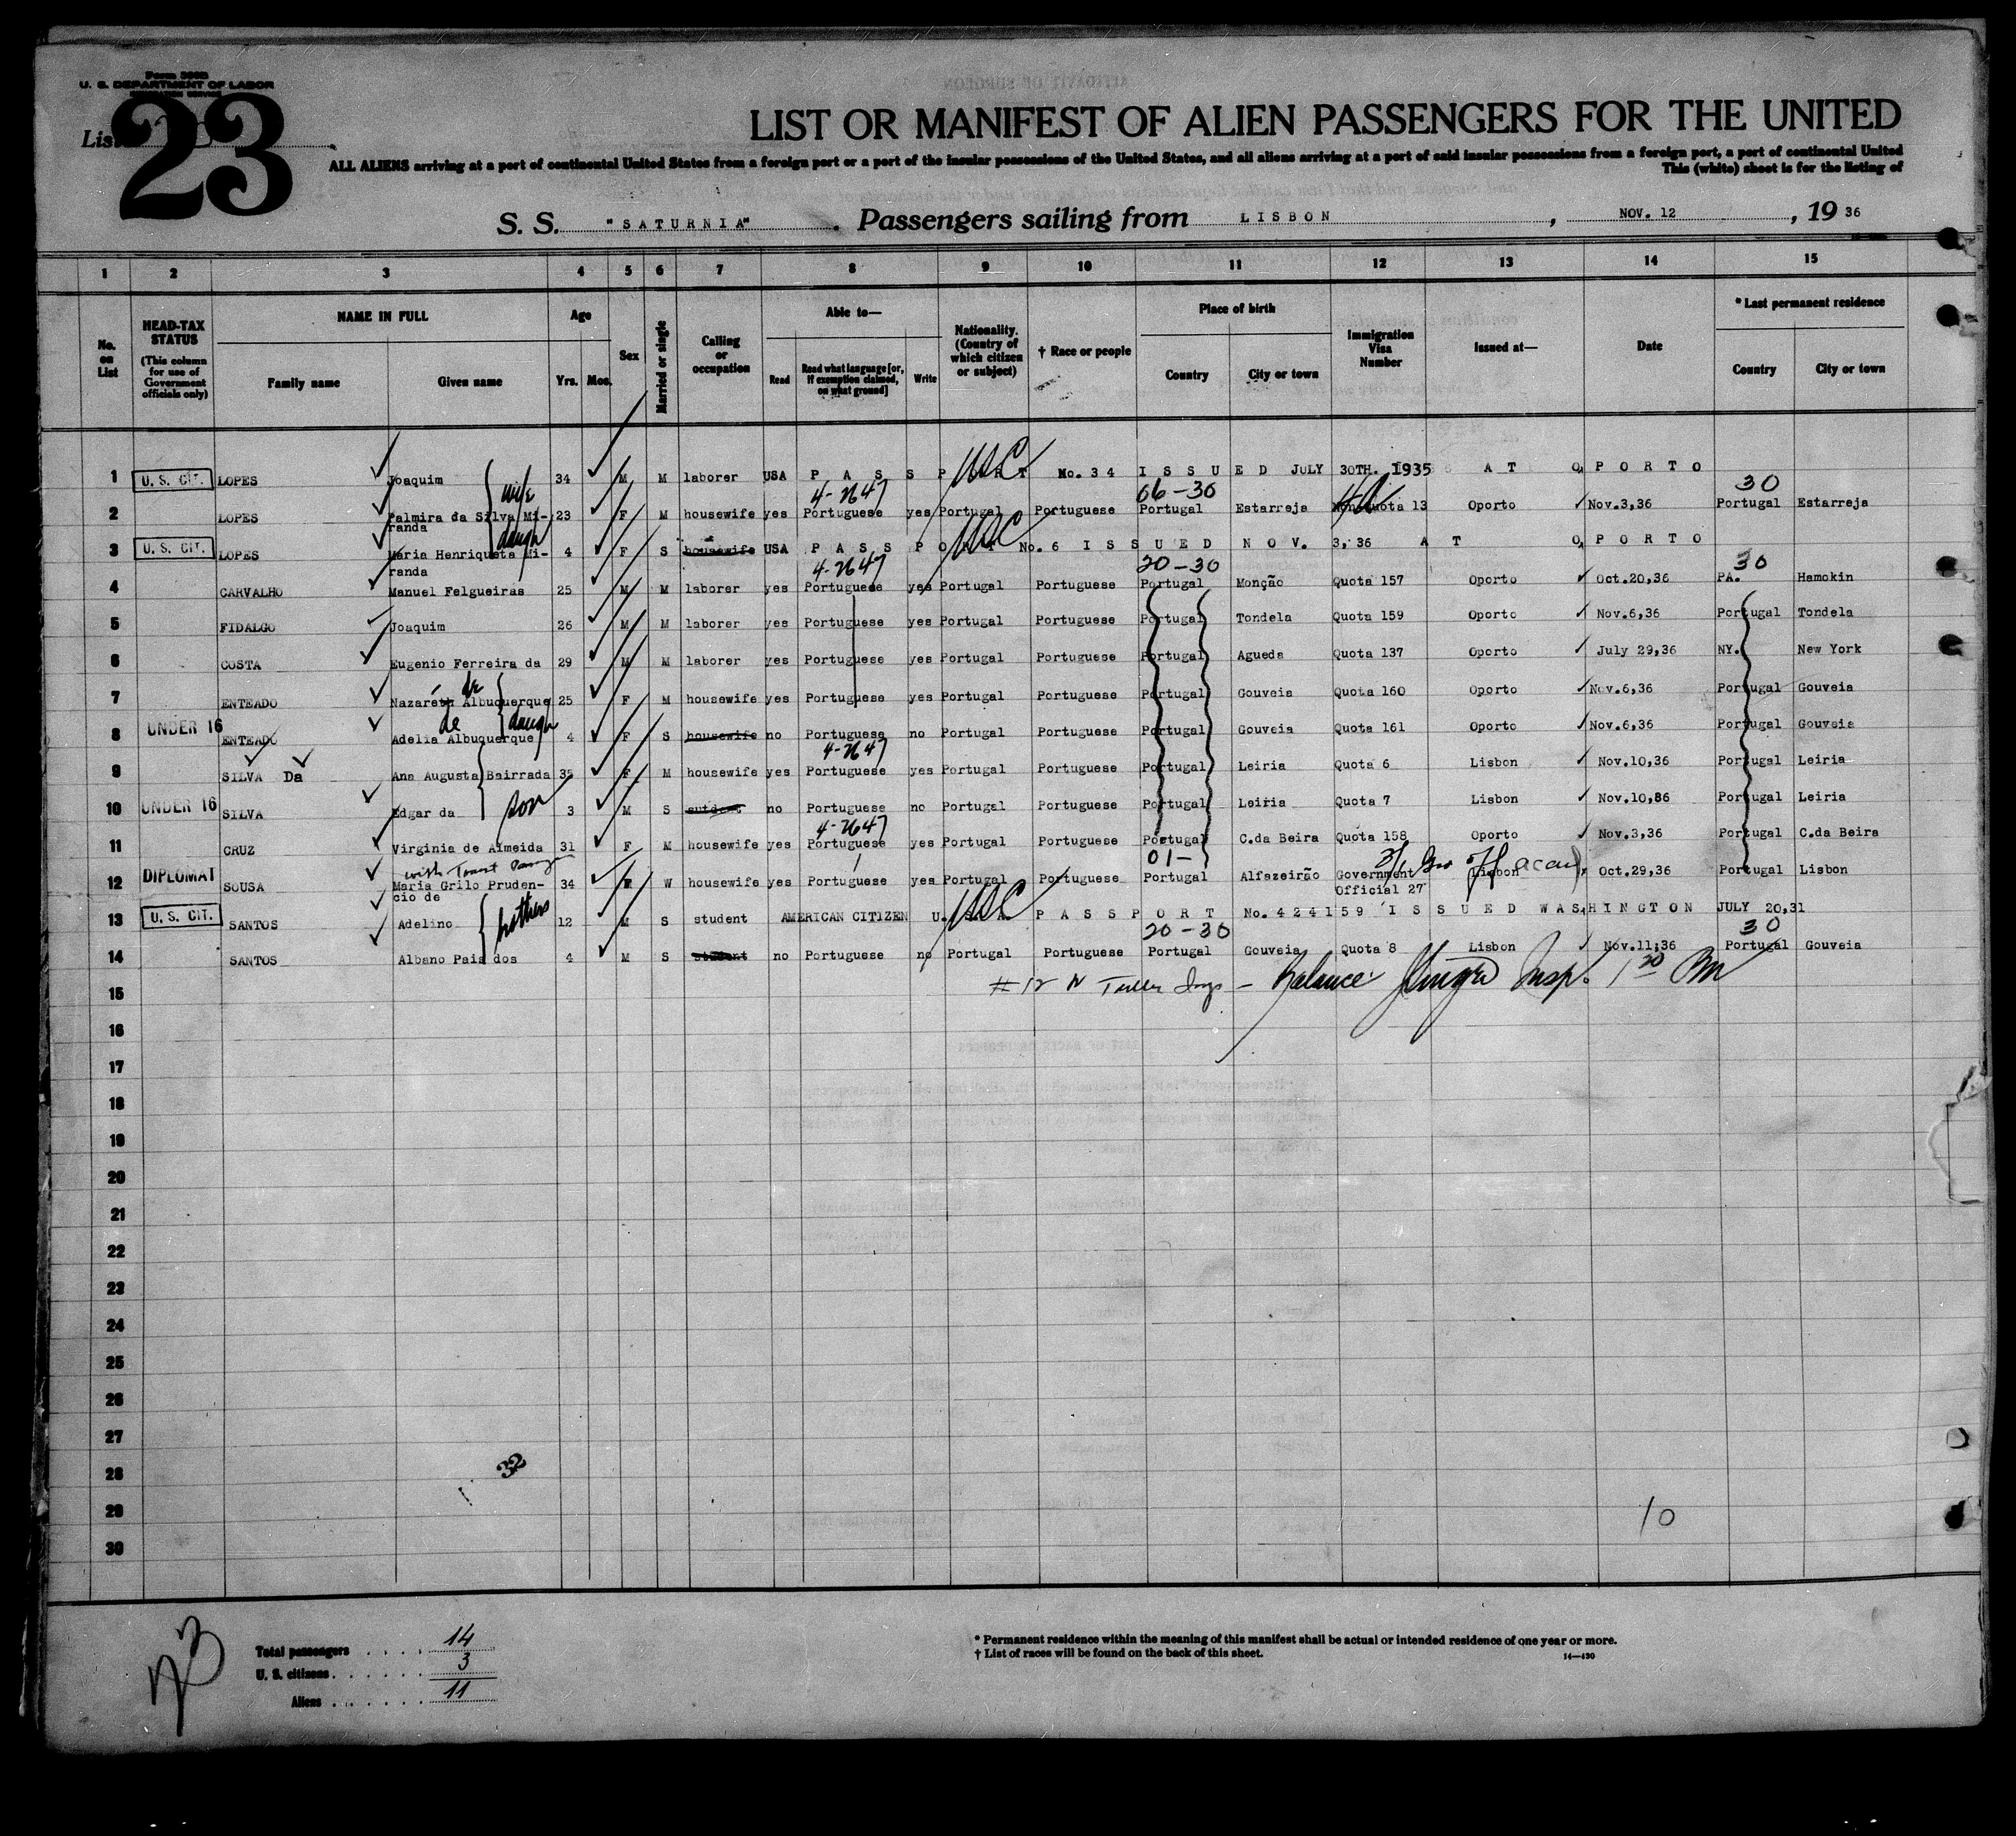 Form 500B
U. S. DEPARTMENT OF LABOR
List
23
LIST OR MANIFEST OF ALIEN PASSENGERS FOR THE UNITED
ALL ALIENS arriving at a port of continental United States from a foreign port or a port of the insular possessions of the United States, and all aliens arriving at a port of said insular possessions from a foreign port, a port of continental United
This (white) sheet is for the listing of
S. S. "SATURNIA" . Passengers sailing from LISBON , NOV. 12 , 19 36
1 2 3 4 5 6 7 8 9 10 11 12 13 14 15
No. on List
HEAD-TAX STATUS
(This column for use of Government officials only)
NAME IN FULL
Family name Given name
Age
Yrs. Mos.
Sex
Married or single
Calling or occupation
Able to—
Read Read what language [or, if exemption claimed, on what ground] Write
Nationality. (Country of which citizen or subject)
† Race or people
Place of birth
Country City or town
Immigration Visa Number
Issued at—
Date
* Last permanent residence
Country City or town
1 U. S. CIT. LOPES Joaquim 34 M M laborer USA PASSPORT No. 34 ISSUED JULY 30TH. 1935 AT OPORTO
USC
wife 4-2647 06-30 30
2 LOPES Palmira da Silva Mi- 23 F M housewife yes Portuguese yes Portugal Portuguese Portugal Estarreja Non Quota 13 Oporto Nov.3,36 Portugal Estarreja
randa
daugh USC
3 U. S. CIT. LOPES Maria Henriqueta Mi- 4 F S housewife USA PASSPORT No. 6 ISSUED NOV. 3,36 AT OPORTO
randa
4-2647 20-30 30
4 CARVALHO Manuel Felgueiras 25 M M laborer yes Portuguese yes Portugal Portuguese Portugal Monção Quota 157 Oporto Oct.20,36 PA. Hamokin
5 FIDALGO Joaquim 26 M M laborer yes Portuguese yes Portugal Portuguese Portugal Tondela Quota 159 Oporto Nov.6,36 Portugal Tondela
6 COSTA Eugenio Ferreira da 29 M M laborer yes Portuguese yes Portugal Portuguese Portugal Agueda Quota 137 Oporto July 29,36 NY. New York
de
7 ENTEADO Nazareth Albuquerque 25 F M housewife yes Portuguese yes Portugal Portuguese Portugal Gouveia Quota 160 Oporto Nov.6,36 Portugal Gouveia
de daugh
8 UNDER 16 ENTEADO Adelia Albuquerque 4 F S housewife no Portuguese no Portugal Portuguese Portugal Gouveia Quota 161 Oporto Nov.6,36 Portugal Gouveia
4-2647
9 SILVA Da Ana Augusta Bairrada F M housewife yes Portuguese yes Portugal Portuguese Portugal Leiria Quota 6 Lisbon Nov.10,36 Portugal Leiria
son
10 UNDER 16 SILVA Edgar da 3 M S no Portuguese no Portugal Portuguese Portugal Leiria Quota 7 Lisbon Nov.10,86 Portugal Leiria
4-2647
11 CRUZ Virginia de Almeida 31 F M housewife yes Portuguese yes Portugal Portuguese Portugal C.da Beira Quota 158 Oporto Nov.3,36 Portugal C.da Beira
with 01-
12 DIPLOMAT SOUSA Maria Grilo Pruden- 34 F W housewife yes Portuguese yes Portugal Portuguese Portugal Alfazeirão Government Lisbon Oct.29,36 Portugal Lisbon
cio de Official 27
USC
13 U. S. CIT. SANTOS Adelino 12 M S student AMERICAN CITIZEN U.S.A. PASSPORT No. 424159 ISSUED WASHINGTON JULY 20,31
brothers 20-30 30
14 SANTOS Albano Pais dos 4 M S student no Portuguese no Portugal Portuguese Portugal Gouveia Quota 8 Lisbon Nov.11,36 Portugal Gouveia
15 #12 Balance Insp. 1 20 PM
16
17
18
19
20
21
22
23
24
25
26
27
28 32
29 10
30
Total passengers 14
U. S. citizens 3
Aliens 11
* Permanent residence within the meaning of this manifest shall be actual or intended residence of one year or more.
† List of races will be found on the back of this sheet.
14—430